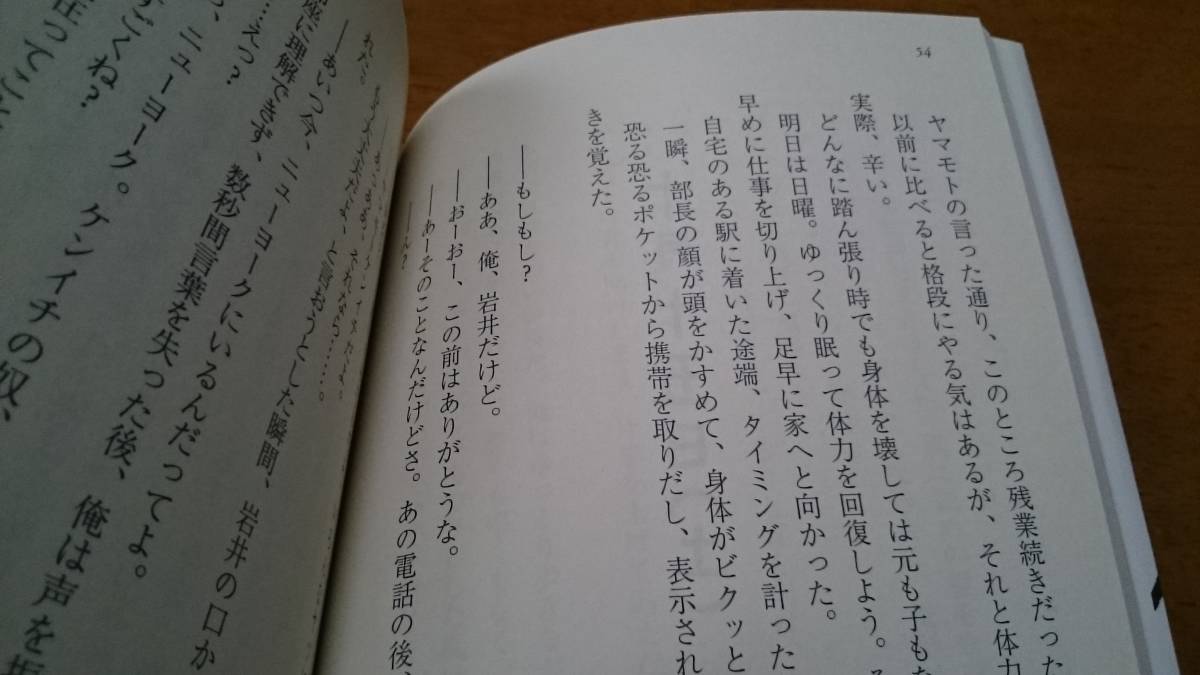 54
ヤマモトの言った通り、このところ残業続きだった
以前に比べると格段にやる気はあるが、それと体力
実際、辛い。
どんなに踏ん張り時でも身体を壊しては元も子もな
明日は日曜。ゆっくり眠って体力を回復しよう。
早めに仕事を切り上げ、足早に家へと向かった。
自宅のある駅に着いた途端、タイミングを計った
一瞬、部長の顔が頭をかすめて、身体がビクッと
恐る恐るポケットから携帯を取りだし、表示され
きを覚えた。
――もしもし?
――ああ、俺、岩井だけど。
――おーおー、この前はありがとうな。
――あーそのことなんだけどさ。あの電話の後、
――ん?
れたら
と言おうとした瞬間、岩井の口か
――あいつ今、ニューヨークにいるんだってよ。
座に理解できず、数秒間言葉を失った後、俺は声を
……えっ?
、ニューヨーク。ケンイチの奴、
すごくね?
住ってこと